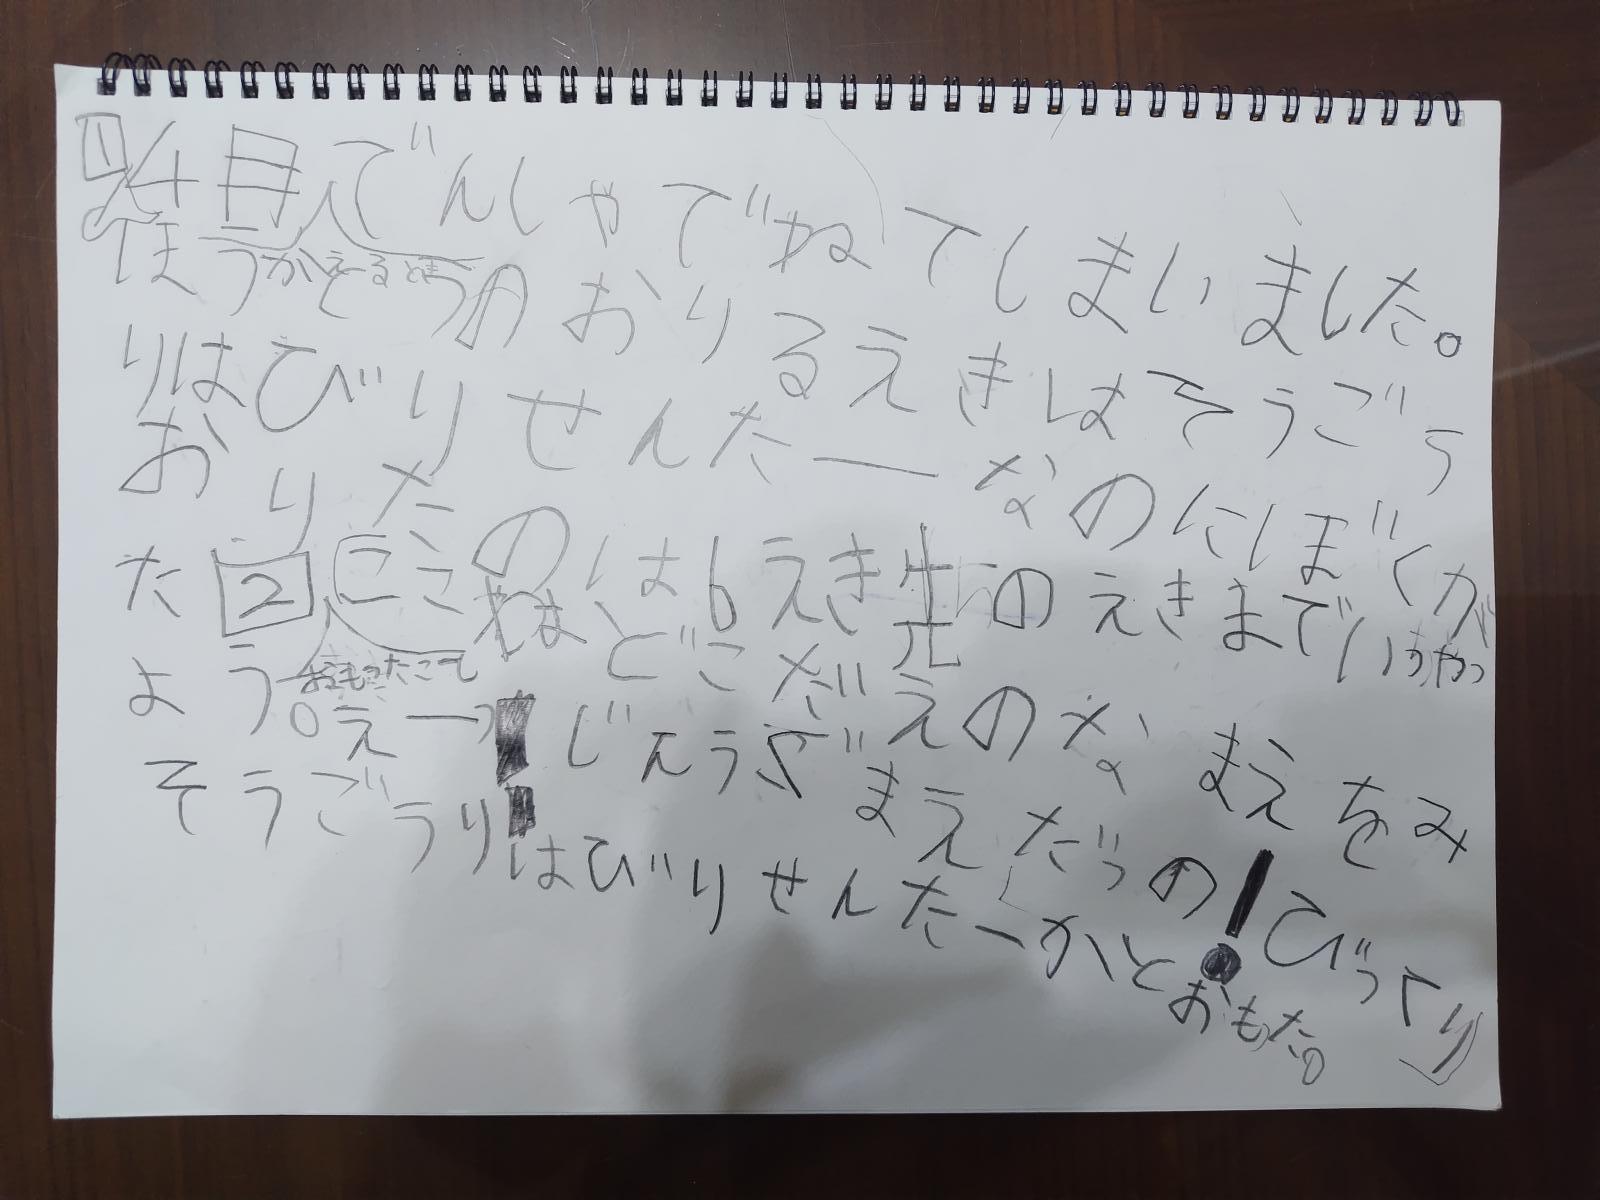 1 4目でんしゃでねてしまいました。
かえーるとき
ほうどうのおりるえきはそうごう
りはびりせんたーなのにぼくが
おりたのは6えき先のえきまでいっちゃっ
た 2 ここのねはどこだえのなまえをみ
おもったこと
よう。えーっ!じんうざまえだっの!びっくり
そうごうりはびりせんたーかとおもた。